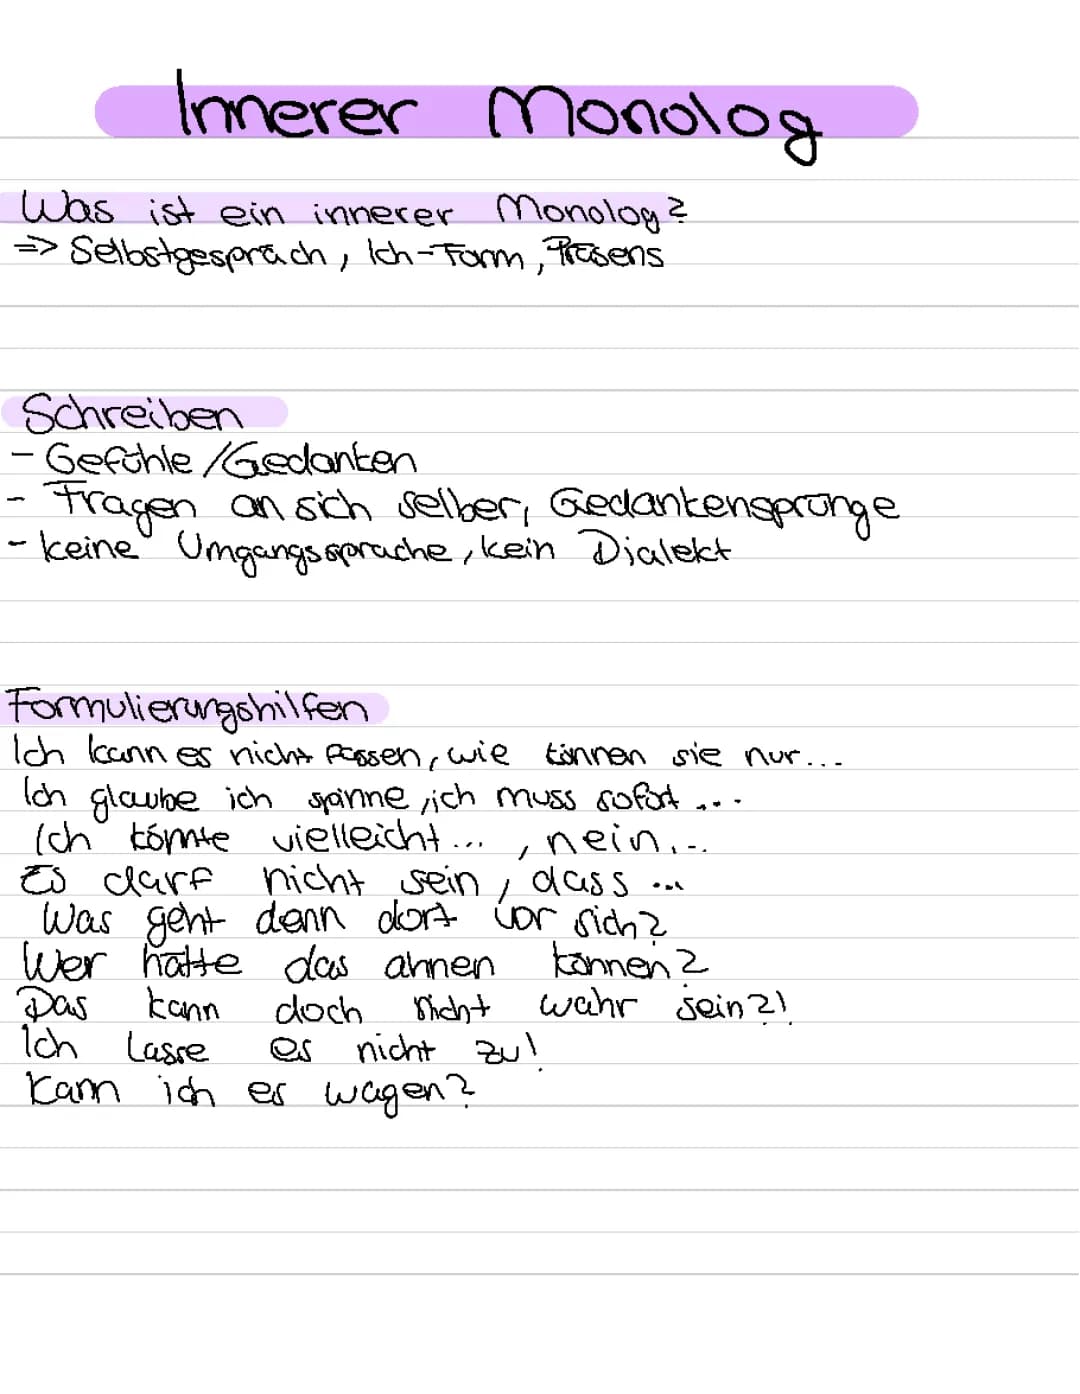 Innerer Monolog
Was ist ein innerer Monolog?
=> Selbstgespräch, Ich-Form, Präsens
Schreiben
- Gefühle/Gedanken
- Fragen an sich selber, Gedankensprünge
- keine Umgangssprache, kein Dialekt
Formulierungshilfen
Ich kann es nicht fassen, wie können sie nur...
Ich glaube ich spinne, ich muss sofort ...
Ich könnte vielleicht ... , nein, ...
Es darf nicht sein, dass ...
Was geht denn dort vor sich?
Wer hätte das ahnen können?
Das kann doch nicht wahr sein?!
Ich lasse es nicht zu!
Kann ich es wagen?